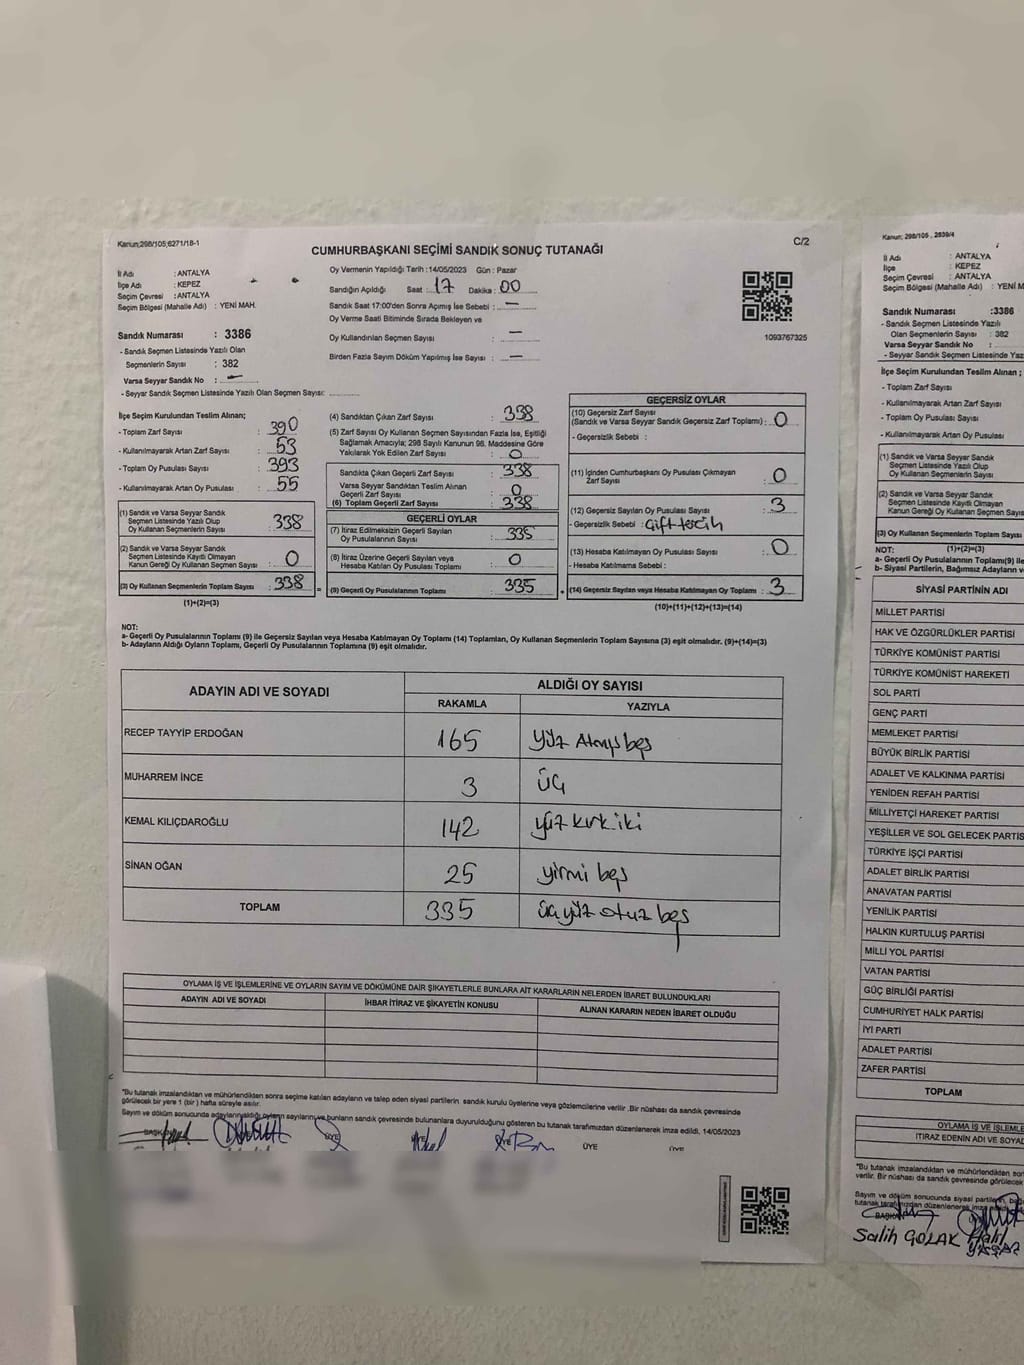 Kanun;298/105;6271/18-1
C/2
CUMHURBAŞKANI SEÇİMİ SANDIK SONUÇ TUTANAĞI
İl Adı : ANTALYA
İlçe Adı : KEPEZ
Seçim Çevresi : ANTALYA
Seçim Bölgesi (Mahalle Adı) : YENİ MAH.
Oy Vermenin Yapıldığı Tarih :14/05/2023 Gün : Pazar
Sandığın Açıldığı Saat : 17 Dakika : 00
Sandık Saat 17:00'den Sonra Açımış İse Sebebi : —
Oy Verme Saati Bitiminde Sırada Bekleyen ve
Oy Kullandırılan Seçmen Sayısı : —
Birden Fazla Sayım Döküm Yapılmış İse Sayısı : —
1093767325
Sandık Numarası : 3386
- Sandık Seçmen Listesinde Yazılı Olan
Seçmenlerin Sayısı : 382
Varsa Seyyar Sandık No : —
- Seyyar Sandık Seçmen Listesinde Yazılı Olan Seçmen Sayısı:
İlçe Seçim Kurulundan Teslim Alınan;
- Toplam Zarf Sayısı : 390
- Kullanılmayarak Artan Zarf Sayısı : 53
- Toplam Oy Pusulası Sayısı : 393
- Kullanılmayarak Artan Oy Pusulası : 55
(1) Sandık ve Varsa Seyyar Sandık
Seçmen Listesinde Yazılı Olup
Oy Kullanan Seçmenlerin Sayısı : 338
(2) Sandık ve Varsa Seyyar Sandık
Seçmen Listesinde Kayıtlı Olmayan
Kanun Gereği Oy Kullanan Seçmen Sayısı : 0
(3) Oy Kullanan Seçmenlerin Toplam Sayısı : 338
(1)+(2)=(3)
(4) Sandıktan Çıkan Zarf Sayısı : 338
(5) Zarf Sayısı Oy Kullanan Seçmen Sayısından Fazla İse, Eşitliği
Sağlamak Amacıyla; 298 Sayılı Kanunun 98. Maddesine Göre
Yakılarak Yok Edilen Zarf Sayısı : 0
Sandıkta Çıkan Geçerli Zarf Sayısı : 338
Varsa Seyyar Sandıktan Teslim Alınan
Geçerli Zarf Sayısı : 0
(6) Toplam Geçerli Zarf Sayısı : 338
GEÇERLİ OYLAR
(7) İtiraz Edilmeksizin Geçerli Sayılan
Oy Pusulalarının Sayısı : 335
(8) İtiraz Üzerine Geçerli Sayılan veya
Hesaba Katılan Oy Pusulası Toplamı : 0
(9) Geçerli Oy Pusulalarının Toplamı : 335
GEÇERSİZ OYLAR
(10) Geçersiz Zarf Sayısı
(Sandık ve Varsa Seyyar Sandık Geçersiz Zarf Toplamı) : 0
- Geçersizlik Sebebi :
(11) İçinden Cumhurbaşkanı Oy Pusulası Çıkmayan
Zarf Sayısı : 0
(12) Geçersiz Sayılan Oy Pusulası Sayısı : 3
- Geçersizlik Sebebi : Çift tercih
(13) Hesaba Katılmayan Oy Pusulası Sayısı : 0
- Hesaba Katılmama Sebebi :
(14) Geçersiz Sayılan veya Hesaba Katılmayan Oy Toplamı : 3
(10)+(11)+(12)+(13)=(14)
NOT:
a- Geçerli Oy Pusulalarının Toplamı (9) ile Geçersiz Sayılan veya Hesaba Katılmayan Oy Toplamı (14) Toplamları, Oy Kullanan Seçmenlerin Toplam Sayısına (3) eşit olmalıdır. (9)+(14)=(3)
b- Adayların Aldığı Oyların Toplamı, Geçerli Oy Pusulalarının Toplamına (9) eşit olmalıdır.
ADAYIN ADI VE SOYADI ALDIĞI OY SAYISI
RAKAMLA YAZIYLA
RECEP TAYYİP ERDOĞAN 165 yüz Atmış beş
MUHARREM İNCE 3 üç
KEMAL KILIÇDAROĞLU 142 yüz kırk iki
SİNAN OĞAN 25 yirmi beş
TOPLAM 335 üç yüz otuz beş
OYLAMA İŞ VE İŞLEMLERİNE VE OYLARIN SAYIM VE DÖKÜMÜNE DAİR ŞİKAYETLERLE BUNLARA AİT KARARLARIN NELERDEN İBARET BULUNDUKLARI
ADAYIN ADI VE SOYADI İHBAR İTİRAZ VE ŞİKAYETİN KONUSU ALINAN KARARIN NEDEN İBARET OLDUĞU
*Bu tutanak imzalandıktan ve mühürlendikten sonra seçime katılan adayların ve talep eden siyasi partilerin sandık kurulu üyelerine veya gözlemcilerine verilir .Bir nüshası da sandık çevresinde
görülecek bir yere 1 (bir ) hafta süreyle asılır.
Sayım ve döküm sonucunda adayların aldığı oyların sayılarını ve bunların sandık çevresinde bulunanlara duyurulduğunu gösteren bu tutanak tarafımızdan düzenlenerek imza edildi. 14/05/2023
BAŞKAN ÜYE ÜYE ÜYE ÜYE
Kanun; 298/105 , 2839/4
İl Adı : ANTALYA
İlçe : KEPEZ
Seçim Çevresi : ANTALYA
Seçim Bölgesi (Mahalle Adı) : YENİ M
Sandık Numarası :3386
- Sandık Seçmen Listesinde Yazılı
Olan Seçmenlerin Sayısı : 382
Varsa Seyyar Sandık No :
- Seyyar Sandık Seçmen Listesinde Yazı
İlçe Seçim Kurulundan Teslim Alınan ;
- Toplam Zarf Sayısı
- Kullanılmayarak Artan Zarf Sayısı
- Toplam Oy Pusulası Sayısı
- Kullanılmayarak Artan Oy Pusulası
(1) Sandık ve Varsa Seyyar Sandık
Seçmen Listesinde Yazılı Olup
Oy Kullanan Seçmenlerin Sayısı
(2) Sandık ve Varsa Seyyar Sandık
Seçmen Listesinde Kayıtlı Olmayan
Kanun Gereği Oy Kullanan Seçmen Sayıs
(3) Oy Kullanan Seçmenlerin Toplam Sayısı
NOT: (1)+(2)=(3)
a- Geçerli Oy Pusulalarının Toplamı(9) ile
b- Siyasi Partilerin, Bağımsız Adayların v
SİYASİ PARTİNİN ADI
MİLLET PARTİSİ
HAK VE ÖZGÜRLÜKLER PARTİSİ
TÜRKİYE KOMÜNİST PARTİSİ
TÜRKİYE KOMÜNİST HAREKETİ
SOL PARTİ
GENÇ PARTİ
MEMLEKET PARTİSİ
BÜYÜK BİRLİK PARTİSİ
ADALET VE KALKINMA PARTİSİ
YENİDEN REFAH PARTİSİ
MİLLİYETÇİ HAREKET PARTİSİ
YEŞİLLER VE SOL GELECEK PARTİS
TÜRKİYE İŞÇİ PARTİSİ
ADALET BİRLİK PARTİSİ
ANAVATAN PARTİSİ
YENİLİK PARTİSİ
HALKIN KURTULUŞ PARTİSİ
MİLLİ YOL PARTİSİ
VATAN PARTİSİ
GÜÇ BİRLİĞİ PARTİSİ
CUMHURİYET HALK PARTİSİ
İYİ PARTİ
ADALET PARTİSİ
ZAFER PARTİSİ
TOPLAM
OYLAMA İŞ VE İŞLEMLE
İTİRAZ EDENİN ADI VE SOYAD
*Bu tutanak imzalandıktan ve mühürlendikten son
verilir. Bir nüshası da sandık çevresinde görülecek
Sayım ve döküm sonucunda siyasi partilerin, bağ
tutanak tarafımızdan düzenlenerek imza
BAŞKAN
Salih GÖLAK Halil
YAŞAR